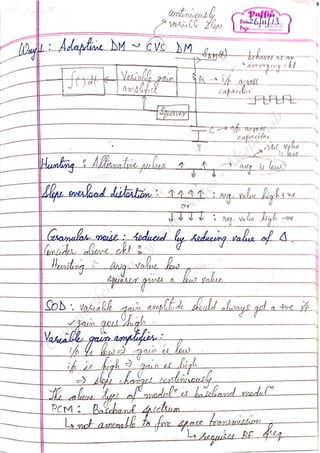 continuously
variable slope
Puffin
Date 26/11/13
Page
Way 1: Adaptive DM ~ CVS DM
behaves as an
averaging ckt
∫( )dt
Variable gain
amplifier
R → i/p across
capacitor
Squarer
C → o/p across
capacitor
value
is low
Hunting : Alternative pulses ↑ ↓ ↑ ↓ → avg is low
Slope overload distortion : ↑ ↑ ↑ ↑ : avg. value high +ve
or
↓ ↓ ↓ ↓ : avg. value high -ve
Granular noise : reduced by reducing value of Δ.
Consider above ckt :
Hunting : avg. value low
squarer gives a low value
SOD : variable gain amplitude should always get a +ve i/p
✓ gain goes high
Variable gain amplifier :
i/p is low ⇒ gain is low
i/p is high ⇒ gain is high
⇒ slope changes continuously
The above type of modulⁿ is baseband modulⁿ
PCM : Baseband spectrum
↳ not amenable to free space transmission
↳ requires RF freq